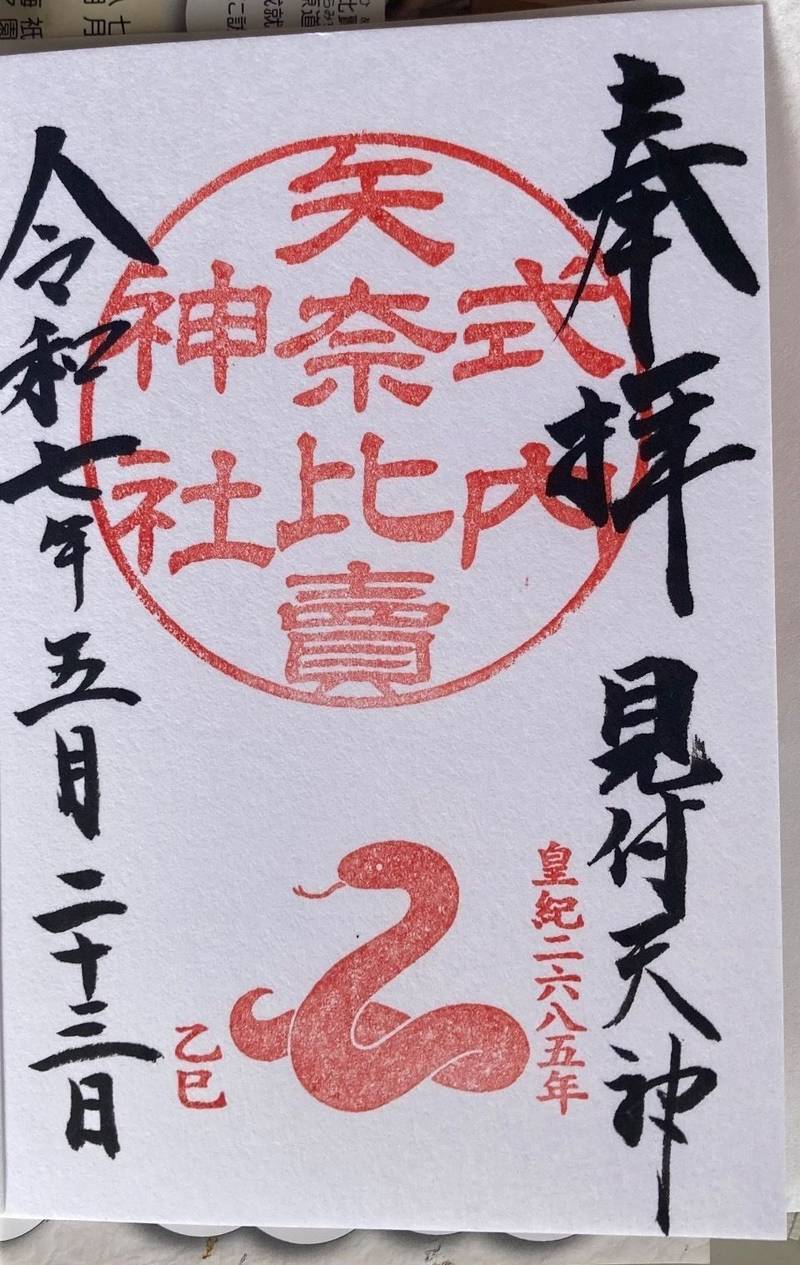 奉拝
見付天神
式内
矢奈比賣
神社
皇紀二六八五年
乙巳
令和七年五月二十三日